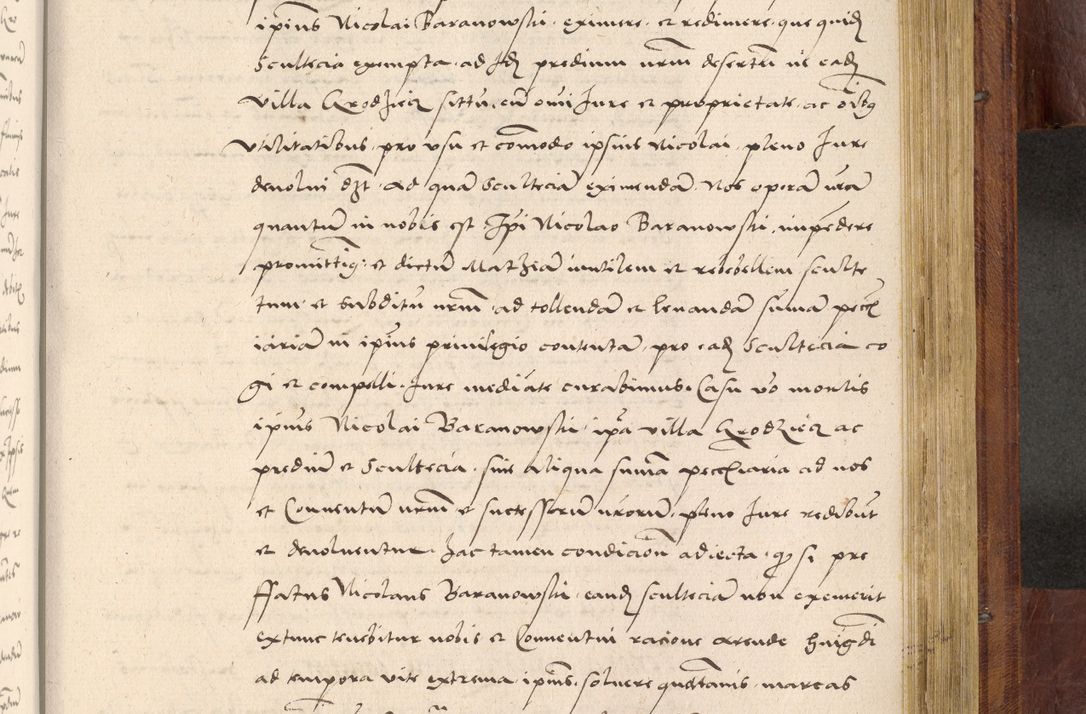 ipsius Nicolai Baranowski eximere et redimere que quidem
Scultecia exempta ad Idem predium nostrum desertum in eadem
Villa Grodziecz situm cum omni Iure et proprietate ac omnibus
Utilitatibus pro usu et commodo ipsius Nicolai pleno Iure
devolvi debet Ad quam Sculteciam eximendam Nos operam nostram
quantum in nobis est Ipsi Nicolao Baranowski impendere
promittimus et dictum Mathiam inutilem et rebebellem sculte
tum et Subditum nostrum ad tollendam et levandam summam pecun
iariam in ipsius privilegio contentam pro eadem Scultecia co
gi et compelli Iure mediante curabimus Casu vero mortis
ipsius Nicolai Baranowski ipsa villa Grodziecz ac
predium et Scultecia sine aliqua summa pecuniaria ad nos
et Conventum nostrum et successorum nostrorum pleno Iure redibunt
et devolventur hac tamen condicione adiecta quod si pre
ffatus Nicolaus Baranowski eandem sculteciam non exemerit
extunc tenebitur nobis et Conventui racione arende huiusmodi
ad tempora vite extrema ipsius solvere quottannis marcas